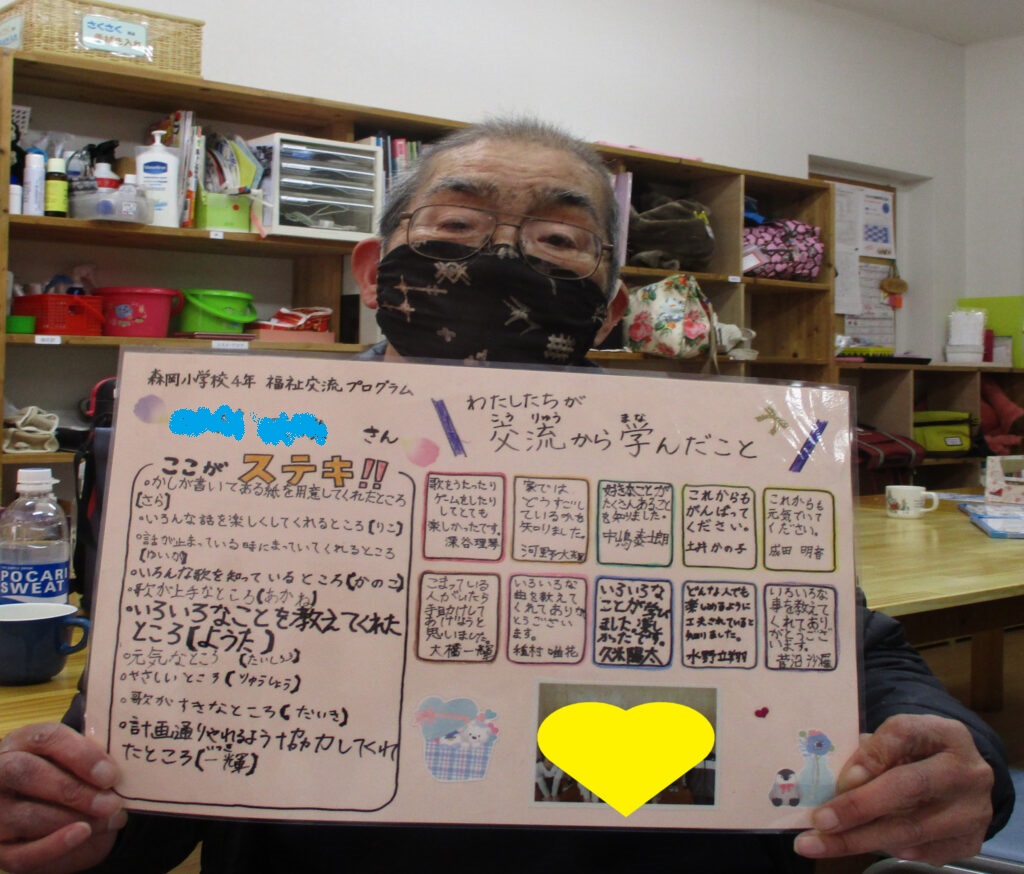 さくさく
森岡小学校4年 福祉交流プログラム
さん
ここが ステキ!!
・かしが書いてある紙を用意してくれたところ
[さら]
・いろんな話を楽しくしてくれるところ[りこ]
・話が止まっている時にまっていてくれるところ
[ゆいか]
・いろんな歌を知っているところ(かのこ)
・歌が上手なところ(あかね)
・いろいろなことを教えてくれた
ところ[ようた]
・元気なところ
・やさしいところ(りゅうしょう)
・歌がすきなところ(だいき)
・計画通りやれるよう協力してくれ
たところ[一輝]
いっき
わたしたちが
こう りゅう まな
交流から学んだこと
歌をうたったり
ゲームをしたり
してとても
楽しかったです。
深谷理琴
家では
どうすごし
ているかを
知りました。
河野大樹
好きなことが
たくさんあること
を知りました。
中嶋泰士朗
これからも
がんばって
ください。
土井かの子
これからも
元気でいて
ください。
成田 明音
こまっている
人がいたら
手助けして
あげようと
思いました。
大橋一輝
いろいろな
曲を教えて
くれてありが
とうござい
ます。
植村唯花
いろいろな
ことが学び
ました。楽し
かったです。
久米陽太
どんな人でも
楽しめるように
工夫されていると
知りました。
水野立翔
いろいろな
事を教えて
くれてあり
がとうござ
います。
菅沼沙羅
POCARI
SWEAT